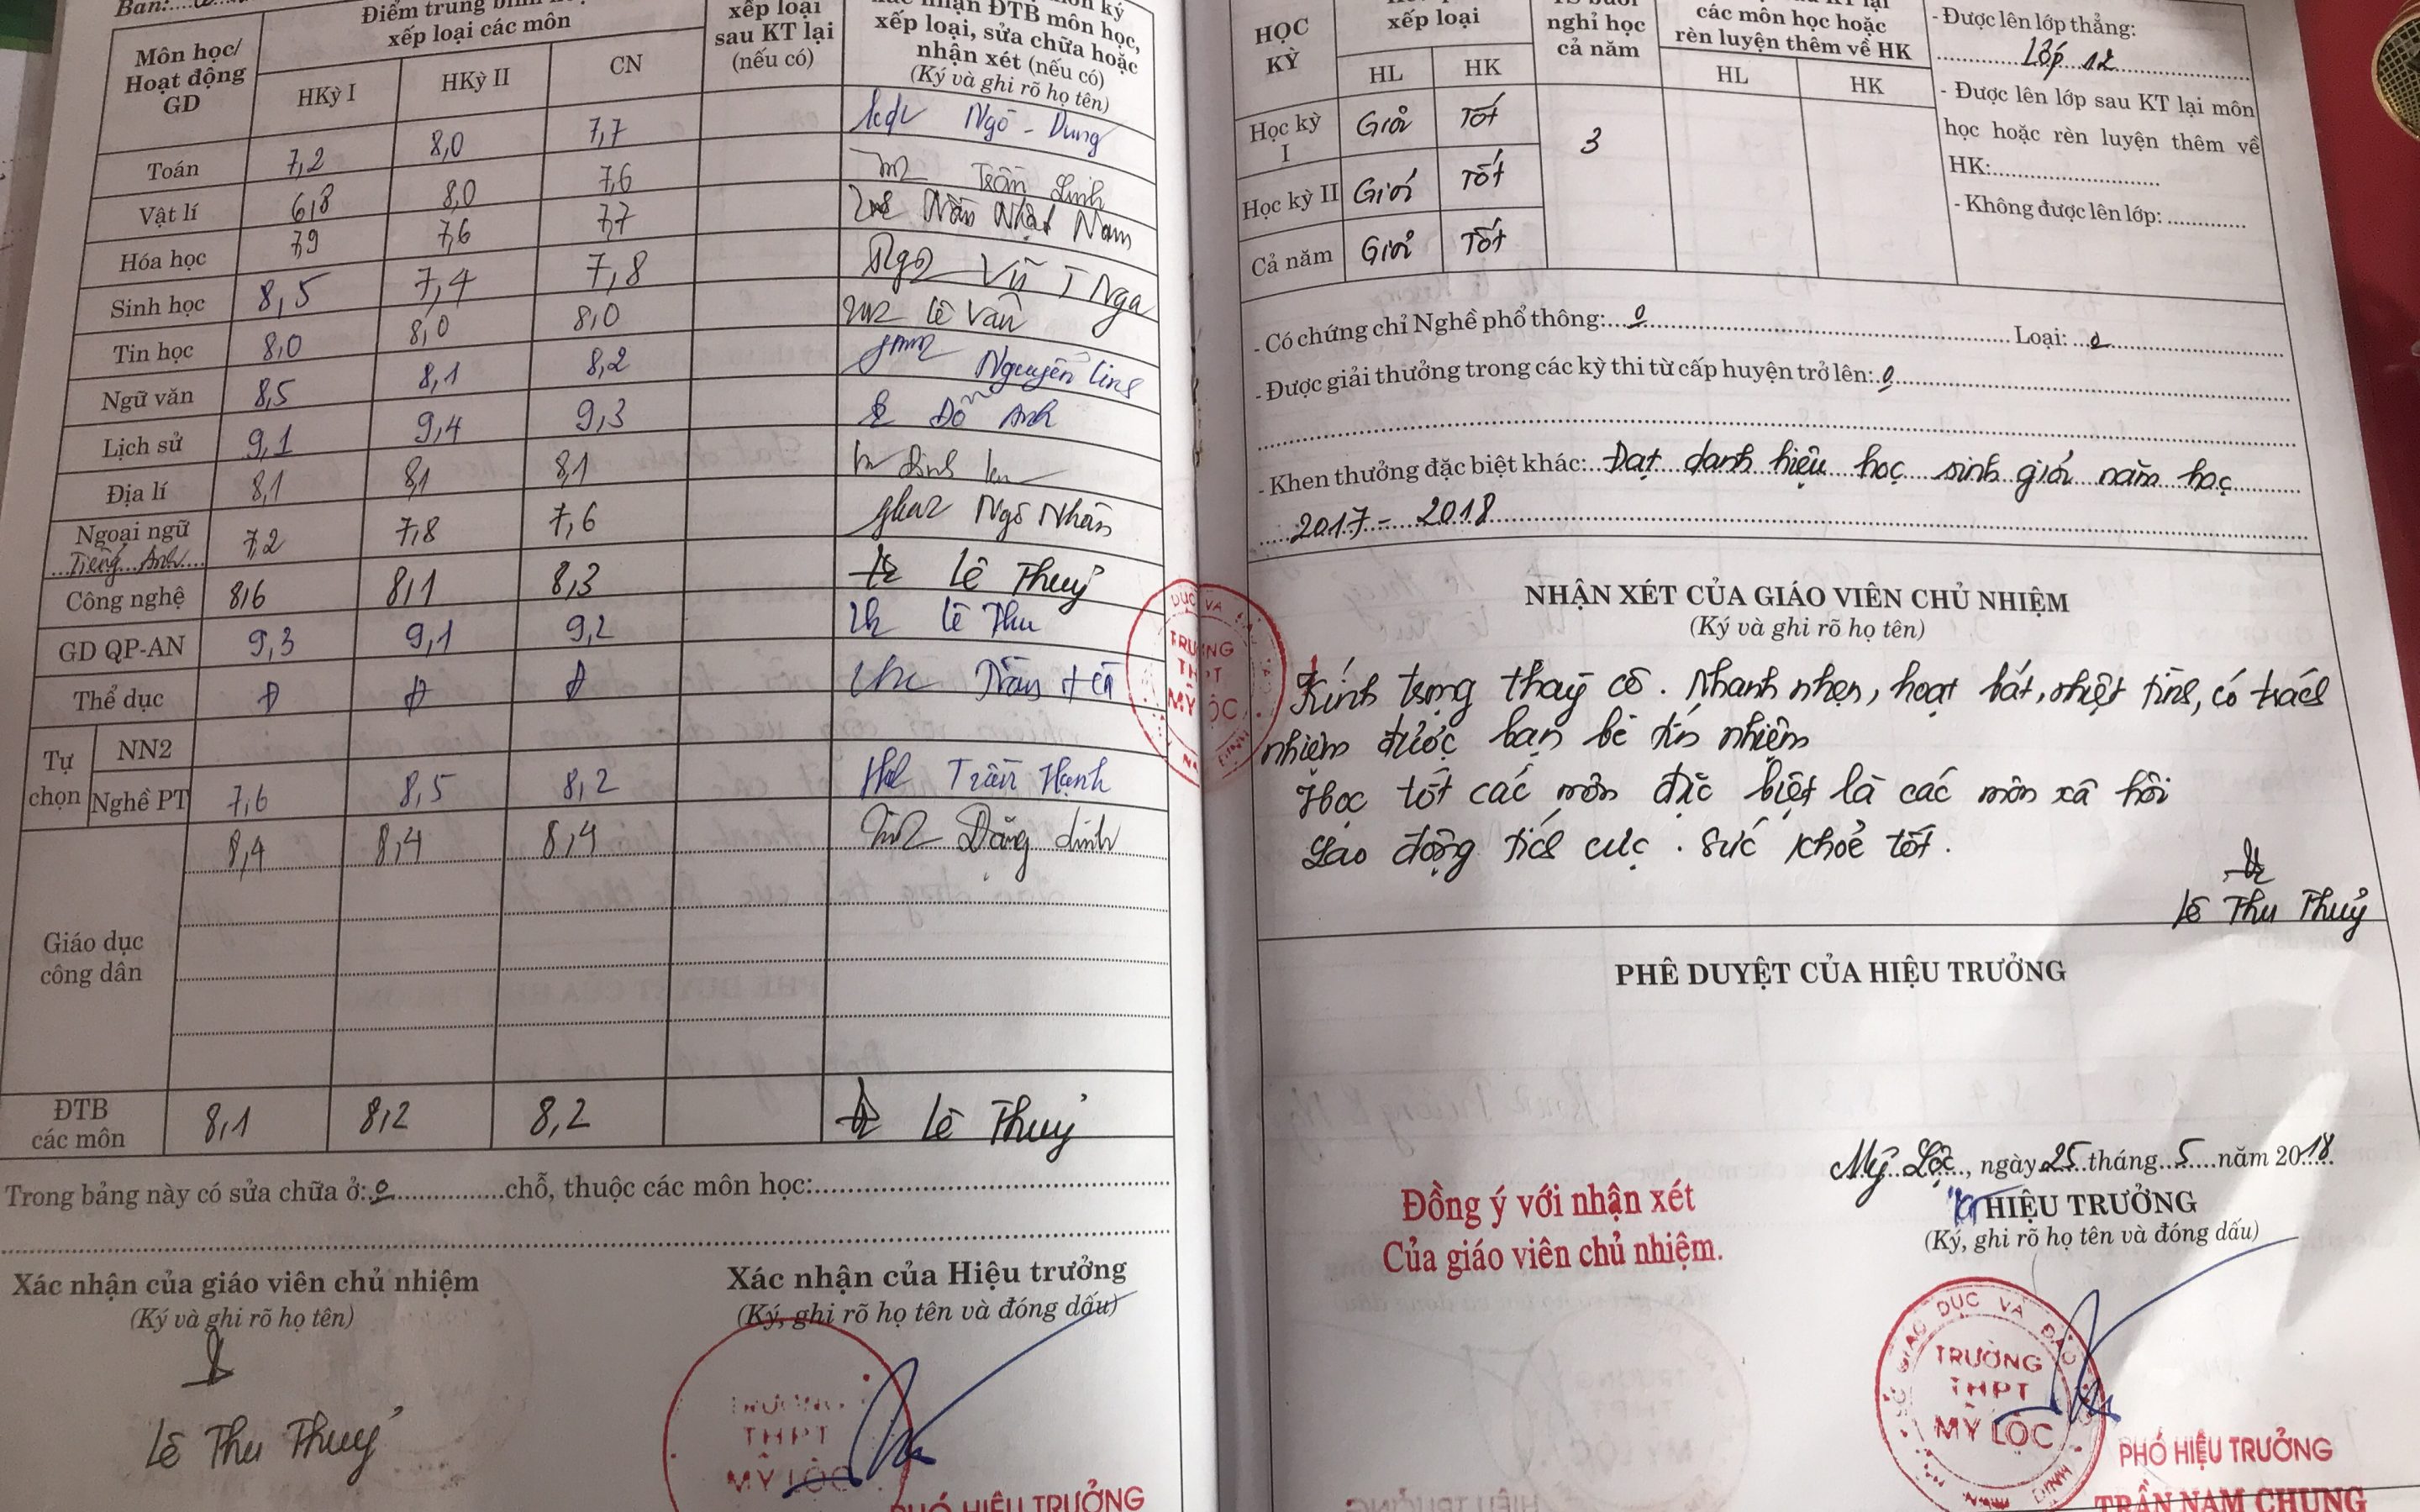 Ban:
Môn học/ Hoạt động GD
Điểm trung bình
xếp loại các môn
HKỳ I HKỳ II CN
xếp loại sau KT lại (nếu có)
nhận ĐTB môn học, xếp loại, sửa chữa hoặc nhận xét (nếu có)
(Ký và ghi rõ họ tên)
Toán 7,2 8,0 7,7 Ngô - Dung
Vật lí 6,8 8,0 7,6 Trần Linh
Hóa học 7,9 7,6 7,7 Trần Nhật Nam
Sinh học 8,5 7,4 7,8 Vũ T Nga
Tin học 8,0 8,0 8,0 Lê Vân
Ngữ văn 8,5 8,1 8,2 Nguyễn
Lịch sử 9,1 9,4 9,3 Đỗ Anh
Địa lí 8,1 8,1 8,1 Đinh
Ngoại ngữ Tiếng Anh 7,2 7,8 7,6 Ngô Nhàn
Công nghệ 8,6 8,1 8,3 Lê Thuỷ
GD QP-AN 9,3 9,1 9,2 Lê Thu
Thể dục Đ Đ Đ Trần
Tự chọn
NN2
Nghề PT 7,6 8,5 8,2 Trần Hạnh
Giáo dục công dân 8,4 8,4 8,4 Đặng Đính
ĐTB các môn 8,1 8,2 8,2 Lê Thuỷ
Trong bảng này có sửa chữa ở: 0 chỗ, thuộc các môn học:
Xác nhận của giáo viên chủ nhiệm
(Ký và ghi rõ họ tên)
Lê Thu Thuỷ
Xác nhận của Hiệu trưởng
(Ký, ghi rõ họ tên và đóng dấu)
TRƯỜNG
THPT
MỸ LỘC
PHÓ HIỆU TRƯỞNG
HỌC KỲ
xếp loại
HL HK
nghỉ học cả năm
các môn học hoặc
rèn luyện thêm về HK
HL HK
Học kỳ I Giỏi Tốt
Học kỳ II Giỏi Tốt
Cả năm Giỏi Tốt
3
- Được lên lớp thẳng:
Lớp 12
- Được lên lớp sau KT lại môn
học hoặc rèn luyện thêm về
HK:
- Không được lên lớp:
- Có chứng chỉ Nghề phổ thông: 0 Loại: 0
- Được giải thưởng trong các kỳ thi từ cấp huyện trở lên: 0
- Khen thưởng đặc biệt khác: Đạt danh hiệu học sinh giỏi năm học
2017 - 2018
NHẬN XÉT CỦA GIÁO VIÊN CHỦ NHIỆM
(Ký và ghi rõ họ tên)
TRƯỜNG
THPT
MỸ LỘC
Kính trọng thầy cô. Nhanh nhẹn, hoạt bát, nhiệt tình, có trách
nhiệm được bạn bè tín nhiệm
Học tốt các môn đặc biệt là các môn xã hội
Lao động tích cực. Sức khoẻ tốt.
Lê Thu Thuỷ
PHÊ DUYỆT CỦA HIỆU TRƯỞNG
Mỹ Lộc, ngày 25 tháng 5 năm 2018
Đồng ý với nhận xét
Của giáo viên chủ nhiệm.
HIỆU TRƯỞNG
(Ký, ghi rõ họ tên và đóng dấu)
TRƯỜNG
THPT
MỸ LỘC
PHÓ HIỆU TRƯỞNG
TRẦN NAM CHUNG